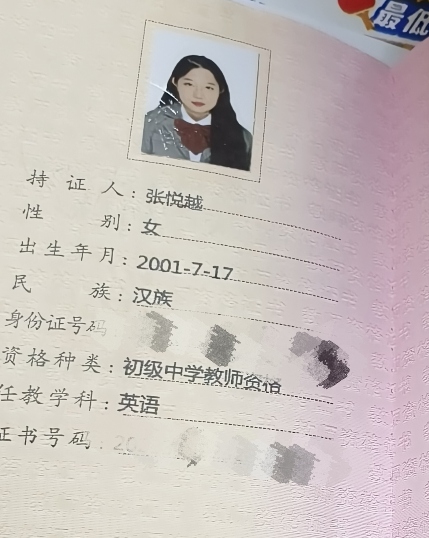 最低
持证人：张悦越
性别：女
出生年月：2001-7-17
民族：汉族
身份证号码
资格种类：初级中学教师资格
任教学科：英语
证书号码：20